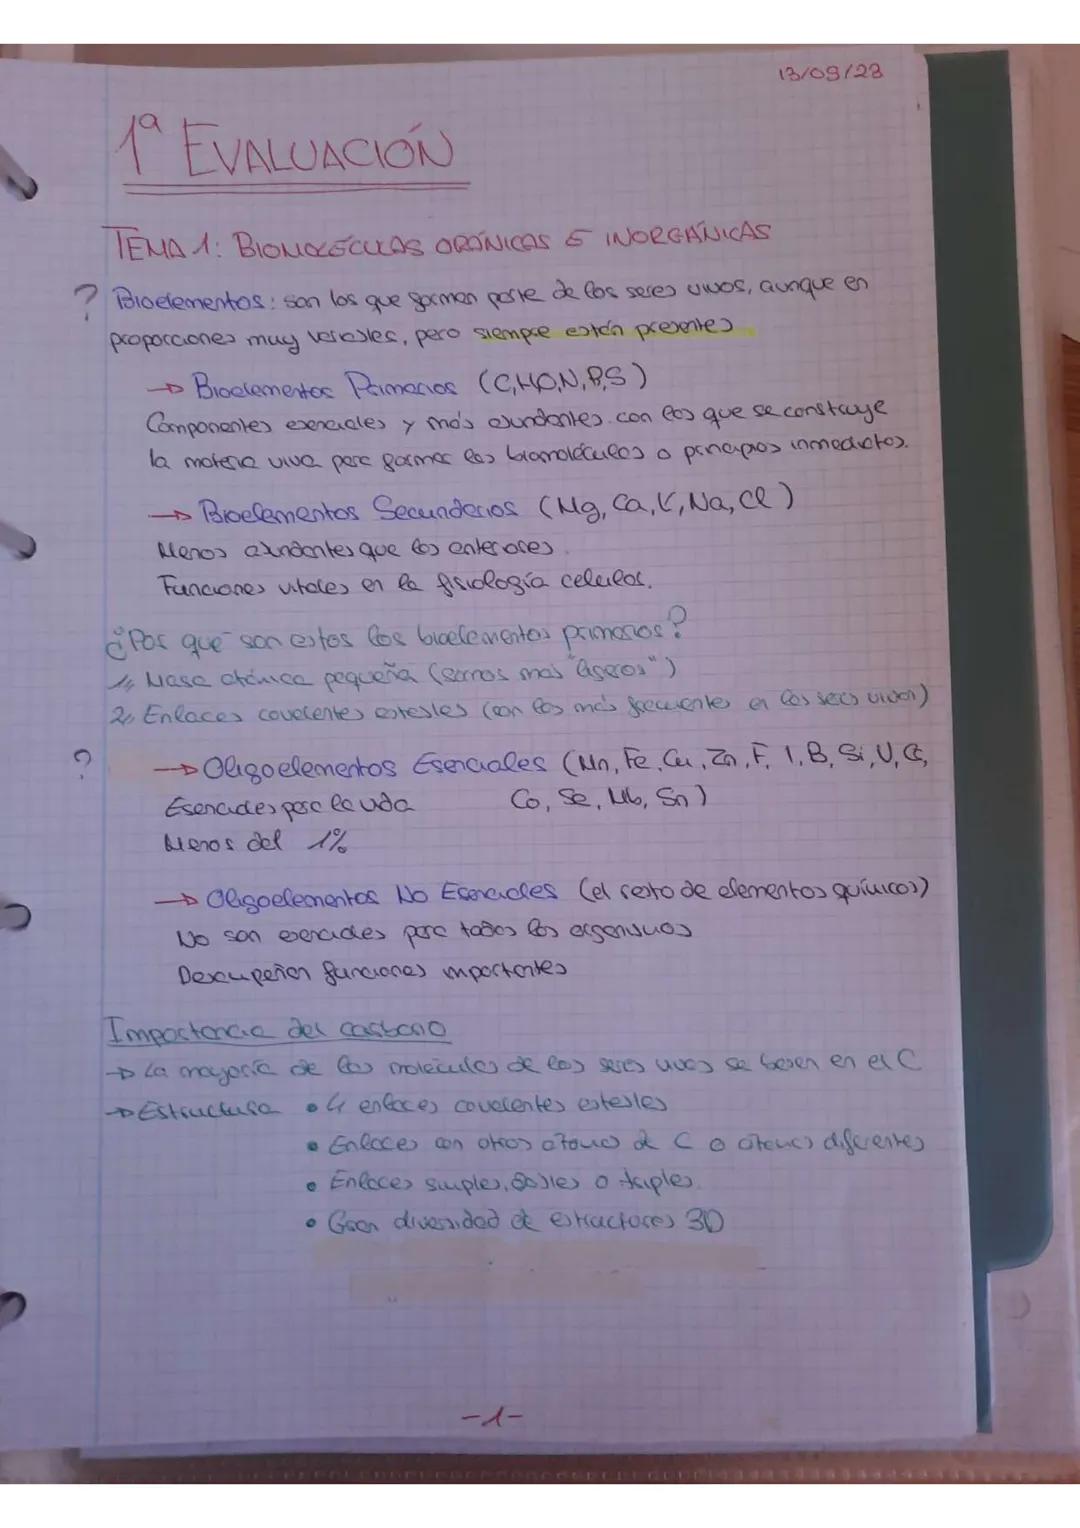 13/09/23
1ª EVALUACIÓN
TEMA 1: BIOMOLÉCULAS ORÁNICAS E INORGÁNICAS
? Bioelementos: son los que forman parte de los seres vivos, aunque en
proporciones muy variables, pero siempre están presentes
→ Bioelementos Primarios (C,H,O,N,P,S)
Componentes esenciales y más abundantes con los que se construye
la materia viva para formar las biomoléculas o principios inmediatos.
→ Bioelementos Secundarios (Mg, Ca, K, Na, Cl)
Menos abundantes que los anteriores.
Funciones vitales en la fisiología celular.
¿Por qué son estos los bioelementos primarios?
1, Masa atómica pequeña (somos más "ligeros")
2, Enlaces covalentes estables (son los más frecuentes en los seres vivos)
? → Oligoelementos Esenciales (Mn, Fe, Cu, Zn, F, I, B, Si, V, Cr,
Esenciales para la vida Co, Se, Mb, Sn)
Menos del 1%
→ Oligoelementos No Esenciales (el resto de elementos químicos)
No son esenciales para todos los organismos
Desempeñan funciones importantes
Importancia del carbono
→ La mayoría de las moléculas de los seres vivos se basan en el C
→ Estructura • 4 enlaces covalentes estables
• Enlaces con otros átomos de C o átomos diferentes
• Enlaces simples, dobles o triples.
• Gran diversidad de estructuras 3D
-1-